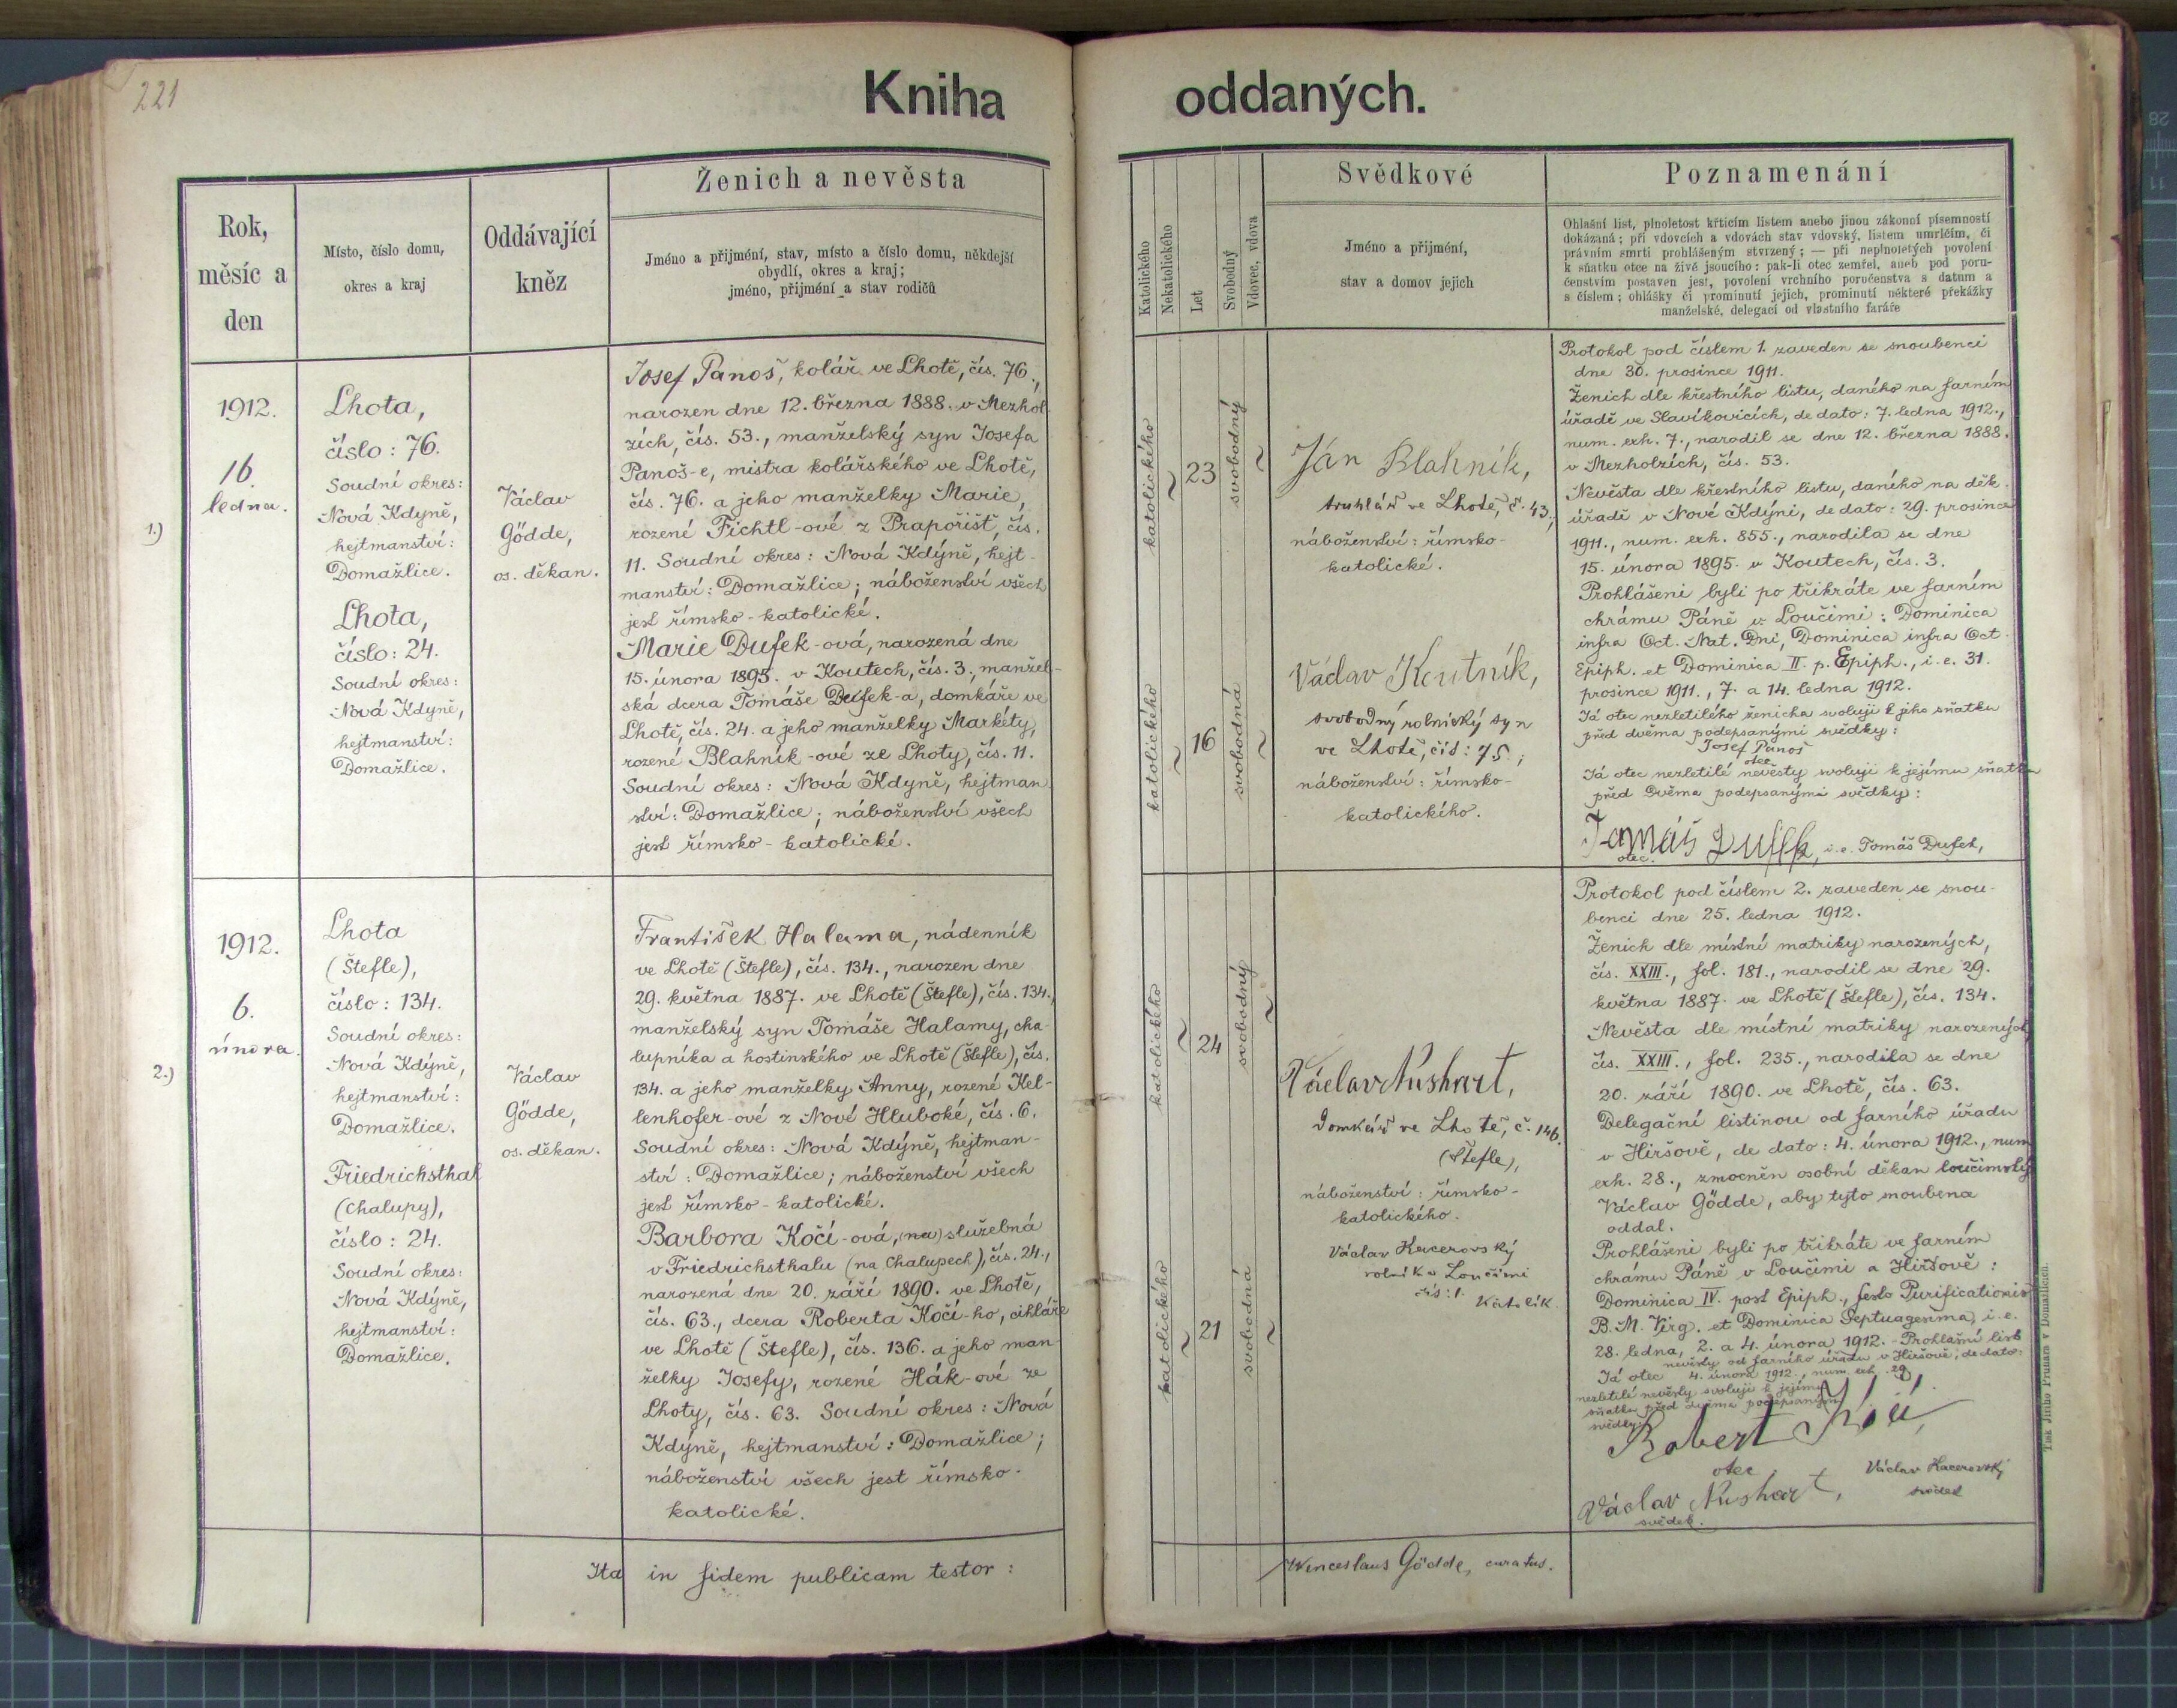 221
Kniha oddaných.
Rok,
měsíc a
den
Místo, číslo domu,
okres a kraj
Oddávající
kněz
Ženich a nevěsta
Jméno a přijmení, stav, místo a číslo domu, někdejší
obydlí, okres a kraj;
jméno, přijmení a stav rodičů
Katolického
Nekatolického
Let
Svobodný
Vdovec, vdova
Svědkové
Jméno a přijmení,
stav a domov jejich
Poznamenání
Ohlašní list, plnoletost křticím listem anebo jinou zákonní písemností
dokázaná; při vdovcích a vdovách stav vdovský, listem umrlčím, či
právním smrti prohlášeným stvrzený; — při neplnoletých povolení
k sňatku otce na živě jsoucího: pak-li otec zemřel, aneb pod poru-
čenstvím postaven jest, povolení vrchního poručenstva s datum a
s číslem; ohlášky či prominutí jejich, prominutí některé překážky
manželské, delegací od vlastního faráře
1.)
1912.
16.
ledna.
Lhota,
číslo: 76.
Soudní okres:
Nová Kdyně,
hejtmanství:
Domažlice.
Lhota,
číslo: 24.
Soudní okres:
Nová Kdyně,
hejtmanství:
Domažlice.
Václav
Gödde,
os. děkan.
Josef Panoš, kolář ve Lhotě, čís. 76.,
narozen dne 12. března 1888. v Mezhol-
zích, čís. 53., manželský syn Josefa
Panoš-e, mistra kolářského ve Lhotě,
čís. 76. a jeho manželky Marie,
rozené Fichtl-ové z Prapořišť, čís.
11. Soudní okres: Nová Kdýně, hejt-
manství: Domažlice; náboženství všech
jest římsko-katolické.
Marie Dufek-ová, narozená dne
15. února 1895. v Koutech, čís. 3., manžel-
ská dcera Tomáše Dufek-a, domkáře ve
Lhotě, čís. 24. a jeho manželky Markéty,
rozené Blahník-ové ze Lhoty, čís. 11.
Soudní okres: Nová Kdyně, hejtman-
ství: Domažlice; náboženství všech
jest římsko-katolické.
katolického
23
svobodný
katolického
16
svobodná
Ján Blahník,
truhlář ve Lhotě, č. 43.;
náboženství: římsko-
katolické.
Václav Koutník,
svobodný rolnický syn
ve Lhotě, čís: 75.;
náboženství: římsko-
katolického.
Protokol pod číslem 1. zaveden se snoubenci
dne 30. prosince 1911.
Ženich dle křestního listu, daného na farním
úřadě ve Slavíkovicích, de dato: 7. ledna 1912.,
num. exh. 7., narodil se dne 12. března 1888.
v Mezholzích, čís. 53.
Nevěsta dle křestního listu, daného na děk.
úřadě v Nové Kdýni, de dato: 29. prosince
1911., num. exh. 855., narodila se dne
15. února 1895. v Koutech, čís. 3.
Prohlášeni byli po třikráte ve farním
chrámu Páně v Loučimi: Dominica
infra Oct. Nat. Dni, Dominica infra Oct.
Epiph. et Dominica II. p. Epiph., i.e. 31.
prosince 1911., 7. a 14. ledna 1912.
Já otec nezletilého ženicha svoluji k jeho sňatku
před dvěma podepsanými svědky:
Josef Panoš
otec
Já otec nezletilé nevěsty svoluji k jejímu sňatku
před dvěma podepsanými svědky:
Tomáš Dufek, i.e. Tomáš Dufek,
otec.
2.)
1912.
6.
února.
Lhota
(Štefle),
číslo: 134.
Soudní okres:
Nová Kdýně,
hejtmanství:
Domažlice.
Friedrichsthal
(Chalupy),
číslo: 24.
Soudní okres:
Nová Kdýně,
hejtmanství:
Domažlice.
Václav
Gödde,
os. děkan.
František Halama, nádenník
ve Lhotě (Štefle), čís. 134., narozen dne
29. května 1887. ve Lhotě (Štefle), čís. 134.,
manželský syn Tomáše Halamy, cha-
lupníka a hostinského ve Lhotě (Štefle), čís.
134. a jeho manželky Anny, rozené Kel-
lenhofer-ové z Nové Hluboké, čís. 6.
Soudní okres: Nová Kdýně, hejtman-
ství: Domažlice; náboženství všech
jest římsko-katolické.
Barbora Kočí-ová, (na) služebná
v Friedrichsthalu (na Chalupech), čís. 24.,
narozená dne 20. září 1890. ve Lhotě,
čís. 63., dcera Roberta Kočí-ho, cihláře
ve Lhotě (Štefle), čís. 136. a jeho man-
želky Josefy, rozené Hák-ové ze
Lhoty, čís. 63. Soudní okres: Nová
Kdýně, hejtmanství: Domažlice;
náboženství všech jest římsko-
katolické.
katolického
24
svobodný
katolického
21
svobodná
Václav Nushart,
domkář ve Lhotě, č. 146.
(Štefle),
náboženství: římsko-
katolického.
Václav Kacerovský
rolník v Loučimi
čís: 1.
Katolík
Protokol pod číslem 2. zaveden se snou-
benci dne 25. ledna 1912.
Ženich dle místní matriky narozených,
čís. XXIII., fol. 181., narodil se dne 29.
května 1887. ve Lhotě (Štefle), čís. 134.
Nevěsta dle místní matriky narozených
čís. XXIII., fol. 235., narodila se dne
20. září 1890. ve Lhotě, čís. 63.
Delegační listinou od farního úřadu
v Hiršově, de dato: 4. února 1912., num.
exh. 28., zmocněn osobní děkan loučimský
Václav Gödde, aby tyto snoubence
oddal.
Prohlášeni byli po třikráte ve farním
chrámu Páně v Loučimi a Hiršově:
Dominica IV. post Epiph., festo Purificationis
B. M. Virg. et Dominica Septuagesima, i.e.
28. ledna, 2. a 4. února 1912. - Prohlašní list
nevěsty od farního úřadu v Hiršově, de dato:
4. února 1912., num. exh. 29.
Já otec
nezletilé nevěsty svoluji k jejímu
sňatku před dvěma podepsanými
svědky:
Robert Kočí,
otec
Václav Kacerovský
svědek
Václav Nushart,
svědek.
Ita in fidem publicam testor:
Wenceslaus Gödde, curatus.
Tisk Jiřího Prunara v Domažlicích.